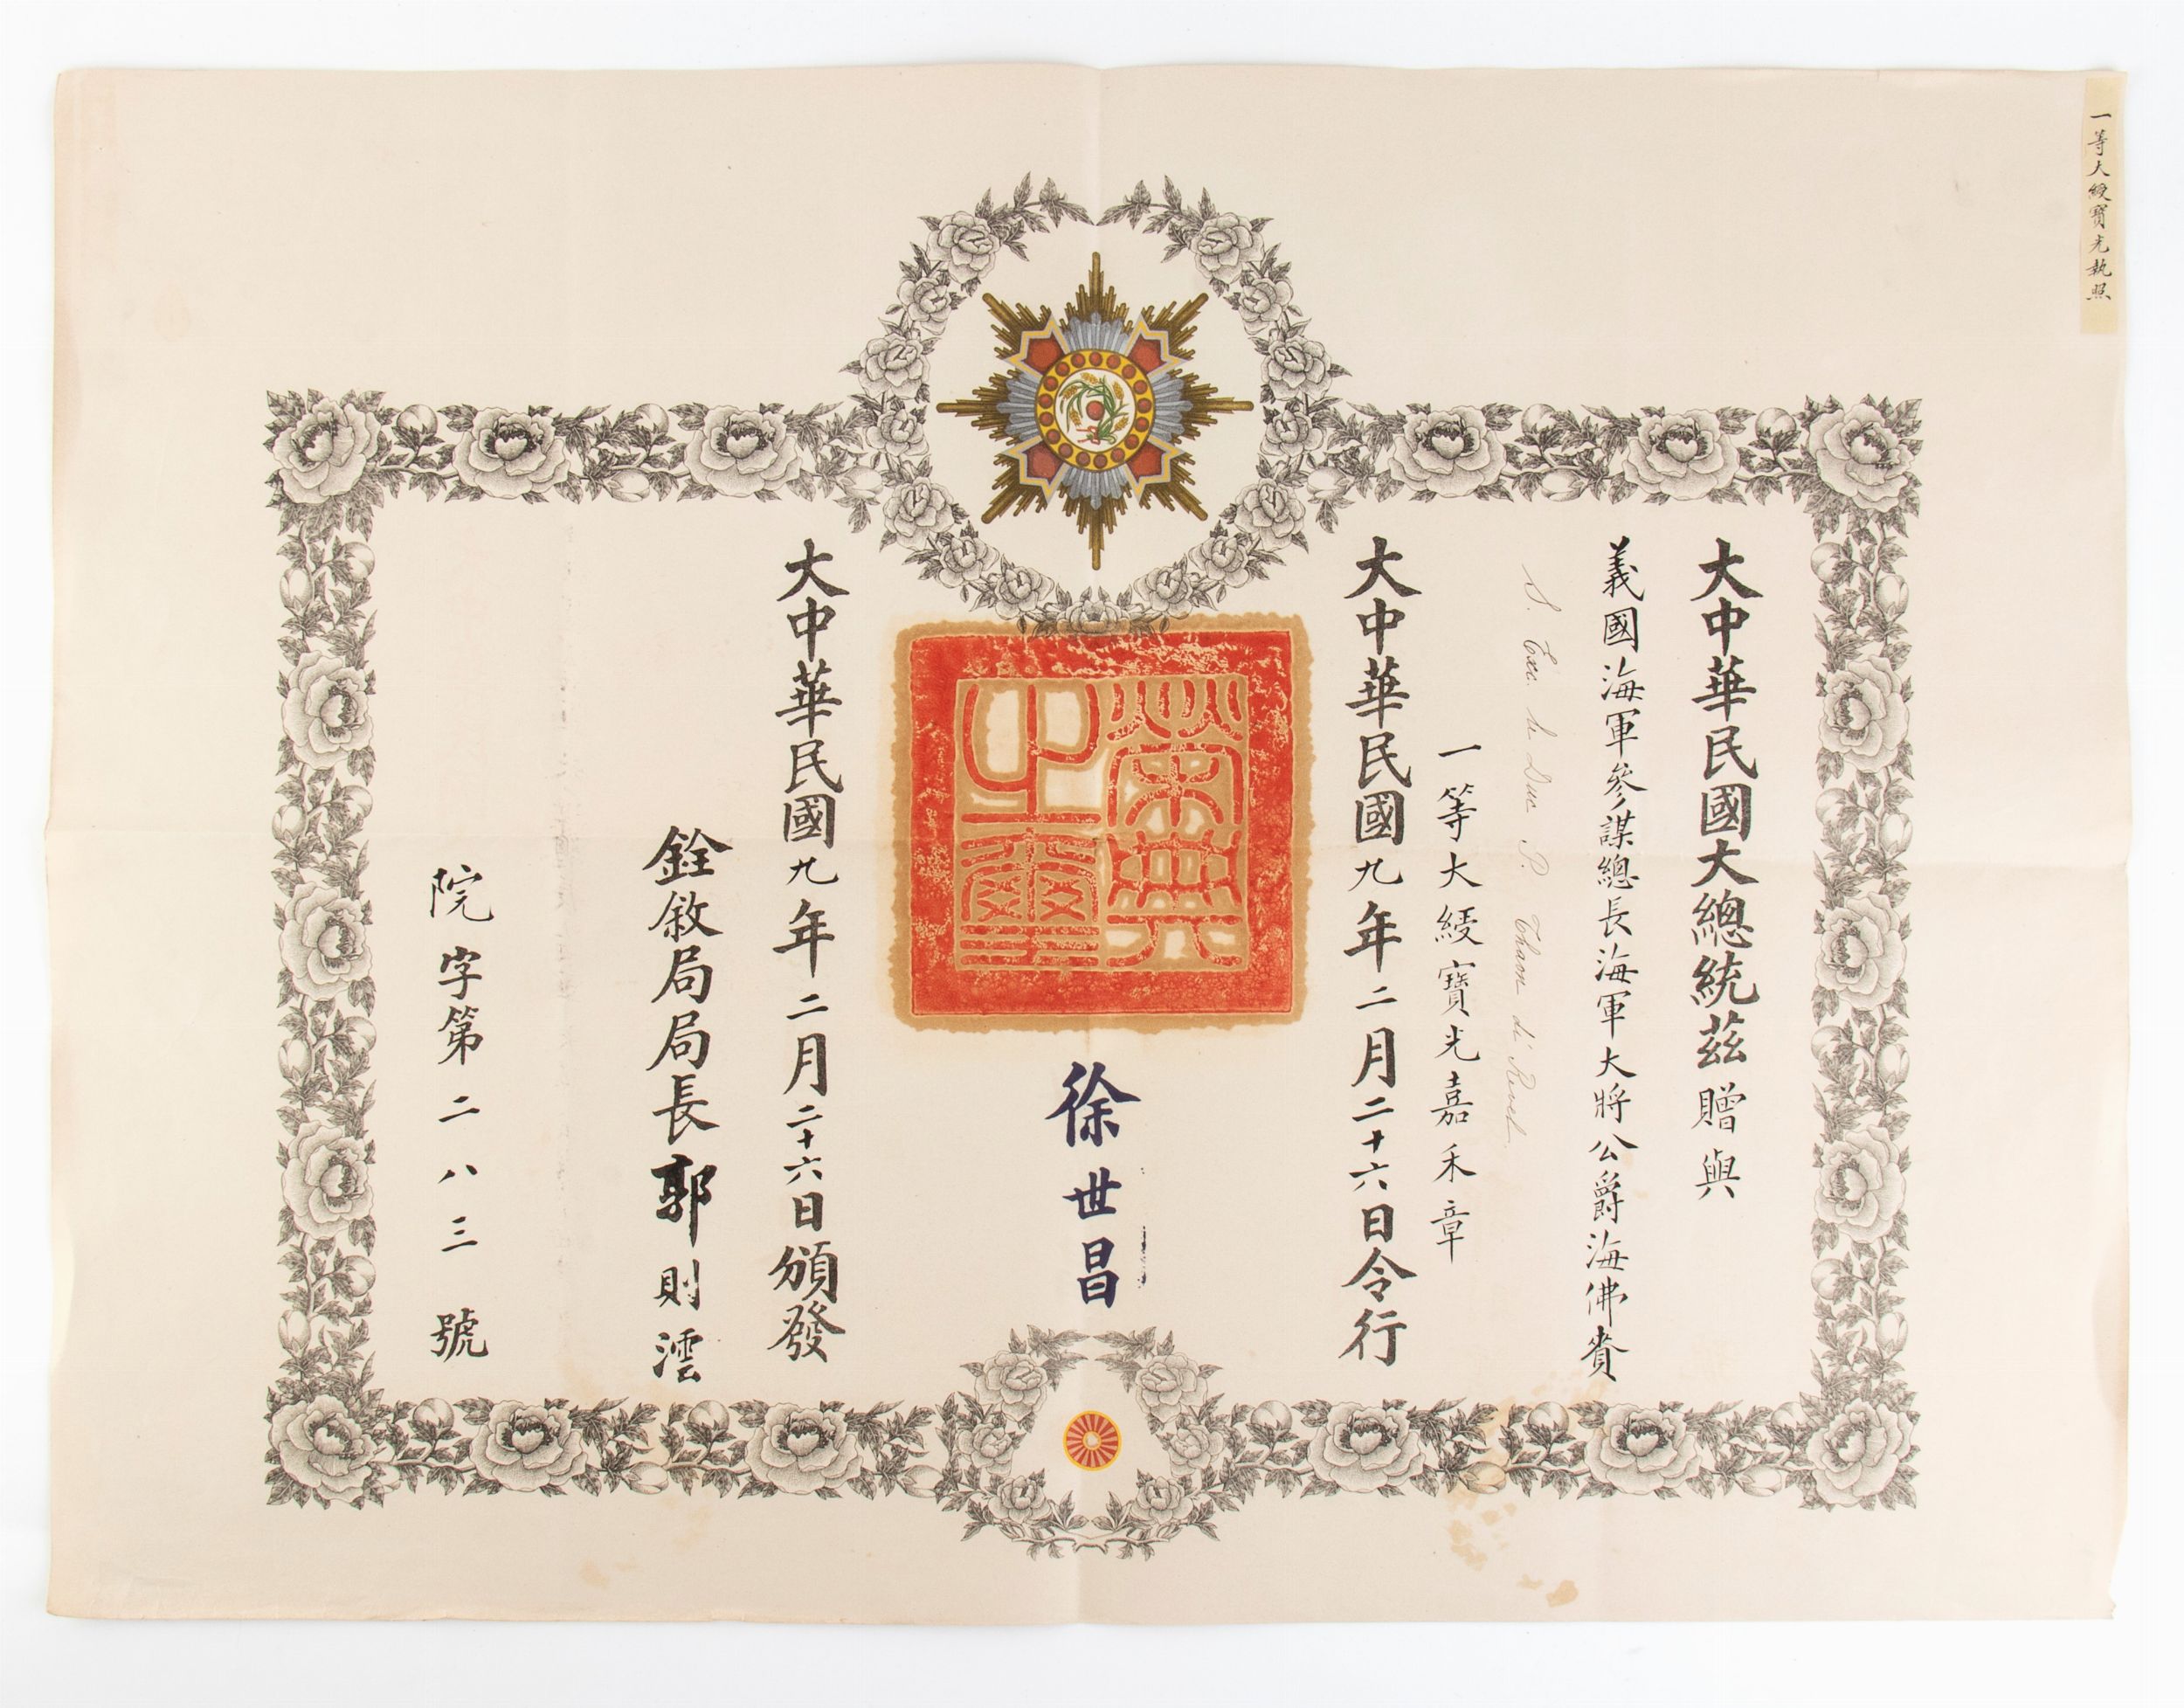 一等大綬寶光執照
大中華民國大總統茲贈與
義國海軍參謀總長海軍大將公爵海佛賚
S. Exc. le Duc P. Thaon di Revel
一等大綬寶光嘉禾章
大中華民國九年二月二十六日令行
榮典之璽
徐世昌
大中華民國九年二月二十六日頒發
銓敘局局長郭則澐
院字第二八三號